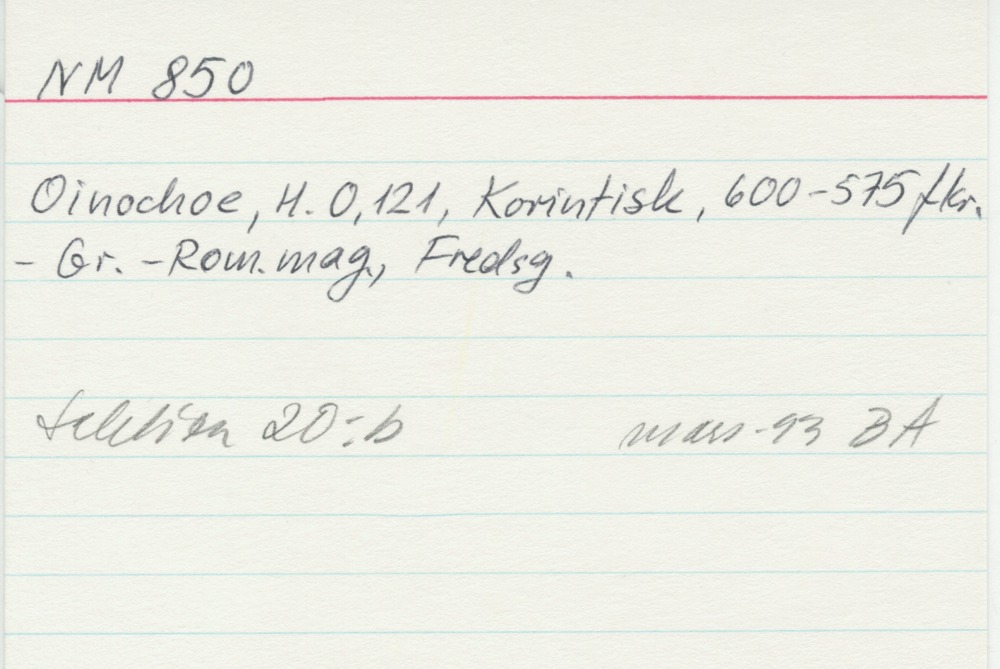 NM 850
Oinochoe, H. 0,121, Korintisk, 600-575 fkr.
- Gr. - Rom. mag., Fredsg.
Sektion 20:b mars -93 BA